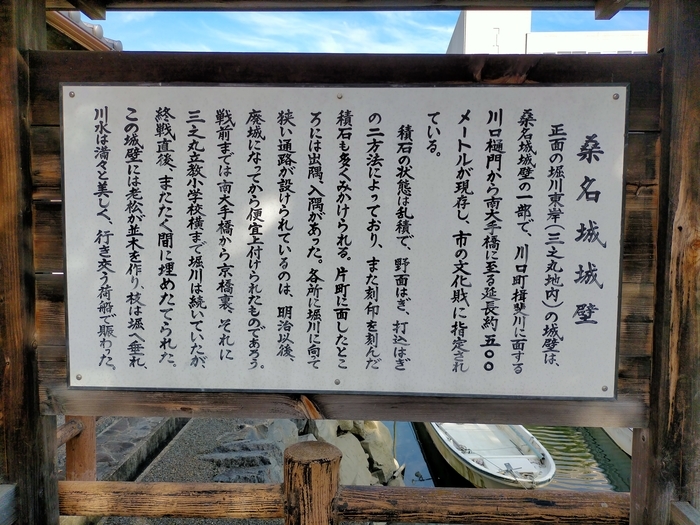 桑名城城壁
正面の堀川東岸(三之丸地内)の城壁は、
桑名城城壁の一部で、川口町揖斐川に面する
川口樋門から南大手橋に至る延長約五〇〇
メートルが現存し、市の文化財に指定され
ている。
積石の状態は乱積で、野面はぎ、打込はぎ
の二方法によっており、また刻印を刻んだ
積石も多くみかけられる。片町に面したとこ
ろには出隅、入隅があった。各所に堀川に向て
狭い通路が設けられているのは、明治以後、
廃城になってから便宜上付けられたものであろう。
戦前までは南大手橋から京橋裏、それに
三之丸立教小学校横まで堀川は続いていたが、
終戦直後、またたく間に埋めたてられた。
この城壁には老松が並木を作り、枝は堀へ垂れ、
川水は満々と美しく、行き交う荷船で賑わった。